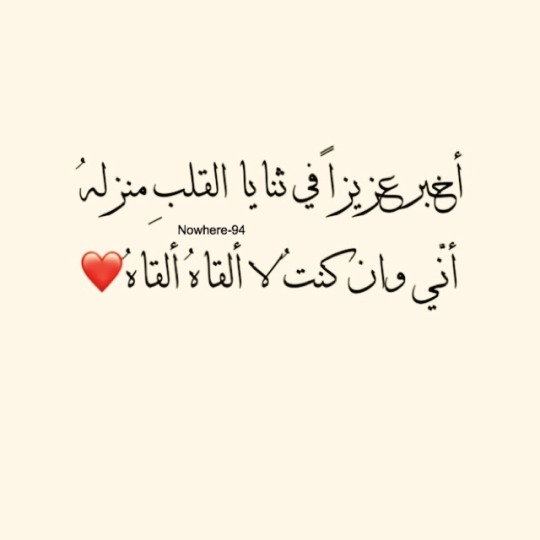 أخبر عزيزاً في ثنايا القلبِ منزلهُ
Nowhere-94
أنّي وان كنتُ لا ألقاهُ ألقاهُ❤️